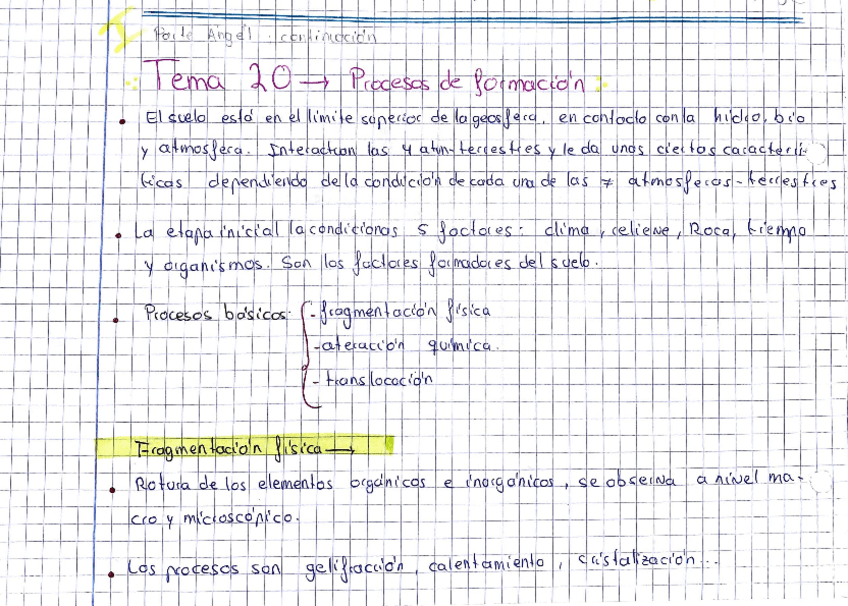 Parte Ángel : continuación
Tema 20 → Procesos de formación
• El suelo está en el límite superior de la geosfera, en contacto con la hidro, bio
y atmosfera. Interactúan las 4 atm-terrestres y le da unas ciertas caracterís-
ticas dependiendo de la condición de cada una de las ≠ atmosferas-terrestres
• La etapa inicial la condicionas 5 factores: clima, relieve, Roca, tiempo
y organismos. Son los factores formadores del suelo.
• Procesos básicos: - fragmentación física
- ateración química.
- translocación
Fragmentación física →
• Rotura de los elementos orgánicos e inorgánicos, se observa a nivel ma-
cro y microscópico.
• Los procesos son gelifracción, calentamiento, cristalización...